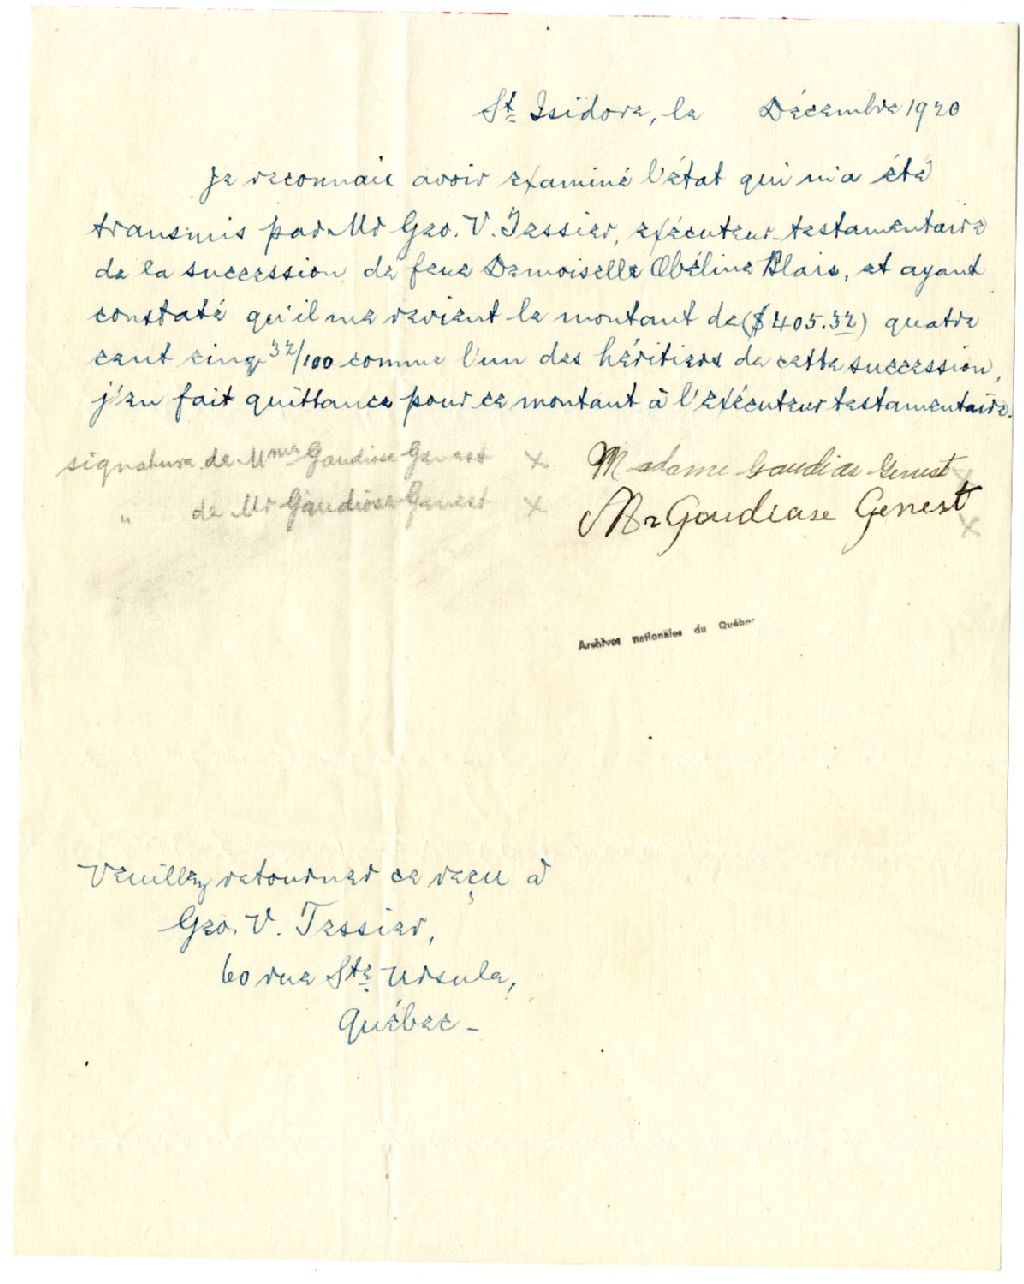 St Isidore, le Décembre 1920
Je reconnais avoir examiné l'état qui m'a été
transmis par Mr Geo. V. Tessier, exécuteur testamentaire
de la succession de feue Demoiselle Obéline Blais, et ayant
constaté qu'il me revient le montant de ($405.32) quatre
cent cinq 32/100 comme l'un des héritiers de cette succession,
j'en fait quittance pour ce montant à l'exécuteur testamentaire.
signature de Mme Gaudiose Genest x Madame Gaudias Genest x
" de Mr Gaudiose Genest x Mr Gaudiase Genest x
Archives nationales du Québec
Veuillez retourner ce reçu à
Geo. V. Tessier,
60 rue Ste Ursule,
Québec -